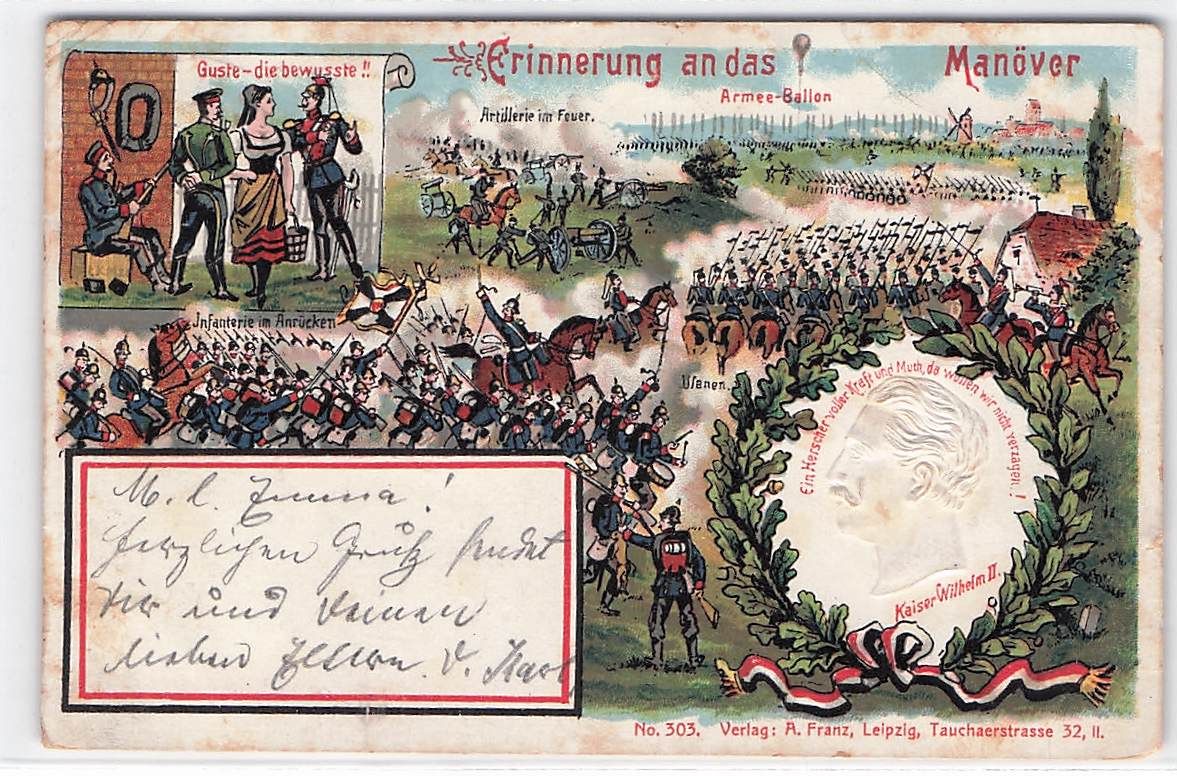 Guste-die bewusste!!
Erinnerung an das Manöver
Armee-Ballon
Artillerie im Feuer.
Infanterie im Anrücken
Ulanen.
Ein Herscher voller Kraft und Muth, da wollen wir nicht verzagen.!
Kaiser Wilhelm II.
M. l. Emma!
Herzlichen Gruß sendet
Dir und Deinen
lieben Eltern. D. Karl
No. 303. Verlag: A. Franz, Leipzig, Tauchaerstrasse 32, II.